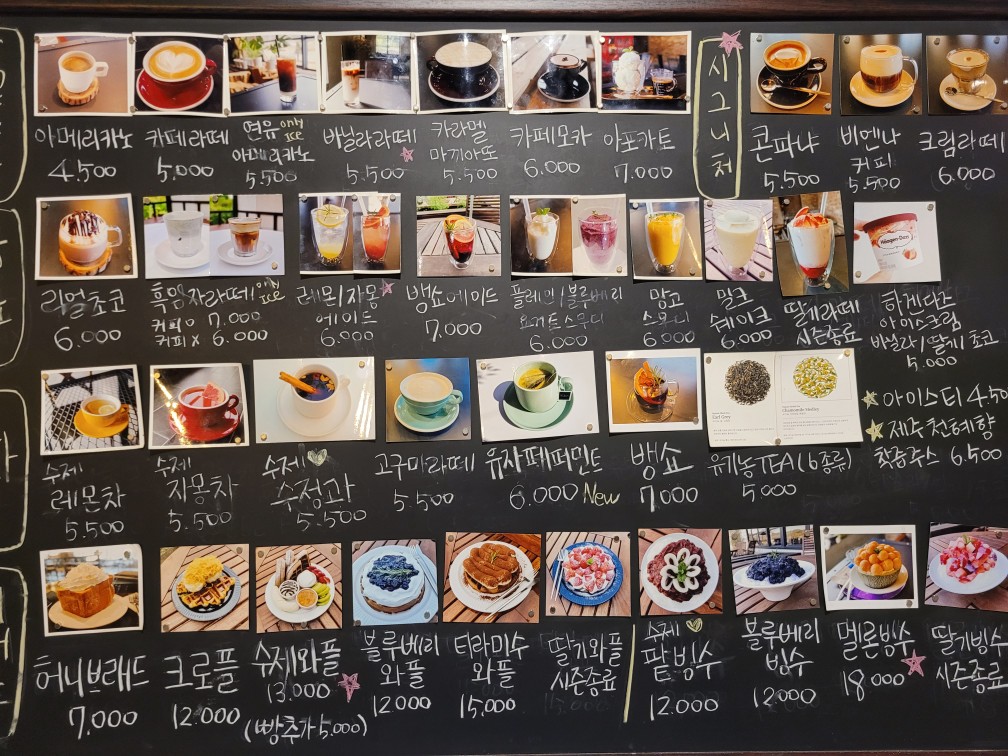 아메리카노
4.500
카페라떼
5.000
연유 only ICE
아메리카노
5.500
바닐라라떼
5.500
카라멜
마끼아또
5.500
카페모카
6.000
아포카토
7.000
시그니처
콘파냐
5.500
비엔나
커피
5.500
크림라떼
6.000
리얼쵸코
6.000
흑임자라떼 only ICE
커피O 7.000
커피X 6.000
레몬/자몽
에이드
6.000
뱅쇼에이드
7.000
플레인/블루베리
요거트스무디
6.000
망고
스무디
6.000
밀크
쉐이크
6.000
딸기라떼
시즌종료
Häagen-Dazs
하겐다즈
아이스크림
바닐라/딸기/쵸코
5.000
수제
레몬차
5.500
수제
자몽차
5.500
수제
수정과
5.500
고구마라떼
5.500
유자페퍼민트
6.000 New
뱅쇼
7.000
Earl Grey
Chamomile Medley
유기농TEA(6종류)
5000
아이스티 4.50
제주천혜향
착즙주스 6.500
허니브래드
7.000
크로플
12.000
수제와플
13.000
(빵추가 5,000)
블루베리
와플
12000
티라미수
와플
15,000
딸기와플
시즌종료
수제
팥빙수
12.000
블루베리
빙수
12000
멜론빙수
18000
딸기빙수
시즌종료